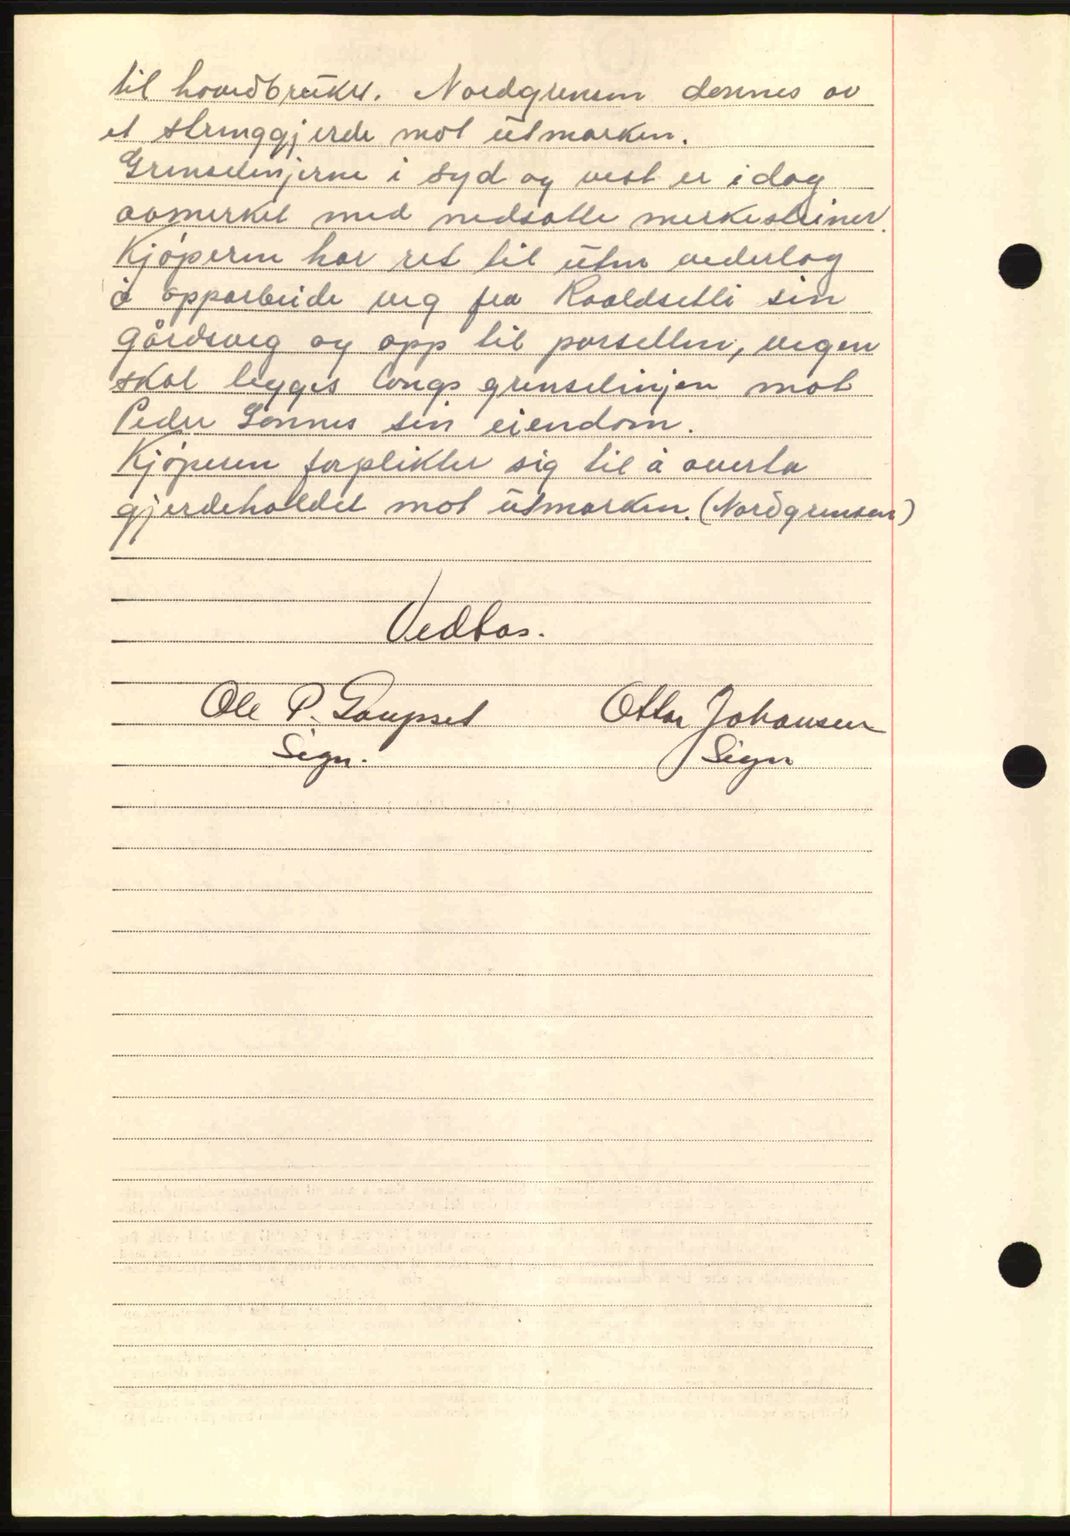 til hovedbruket. Nordgrensen dannes av
et strenggjerde mot utmarken.
Grenselinjerne i syd og vest er idag
avmerket med nedsatte merkesteiner.
Kjøperen har ret til uten vederlag
å opparbeide veg fra Roaldsetli sin
gårdsveg og opp til parsellen, vegen
skal legges langs grenselinjen mot
Peder Sonnes sin eiendom.
Kjøperen forplikter sig til å overta
gjerdeholdet mot utmarken. (Nordgrensen)
Vedtas.
Ole P. Gaupset Ottar Johansen
Sign. Sign